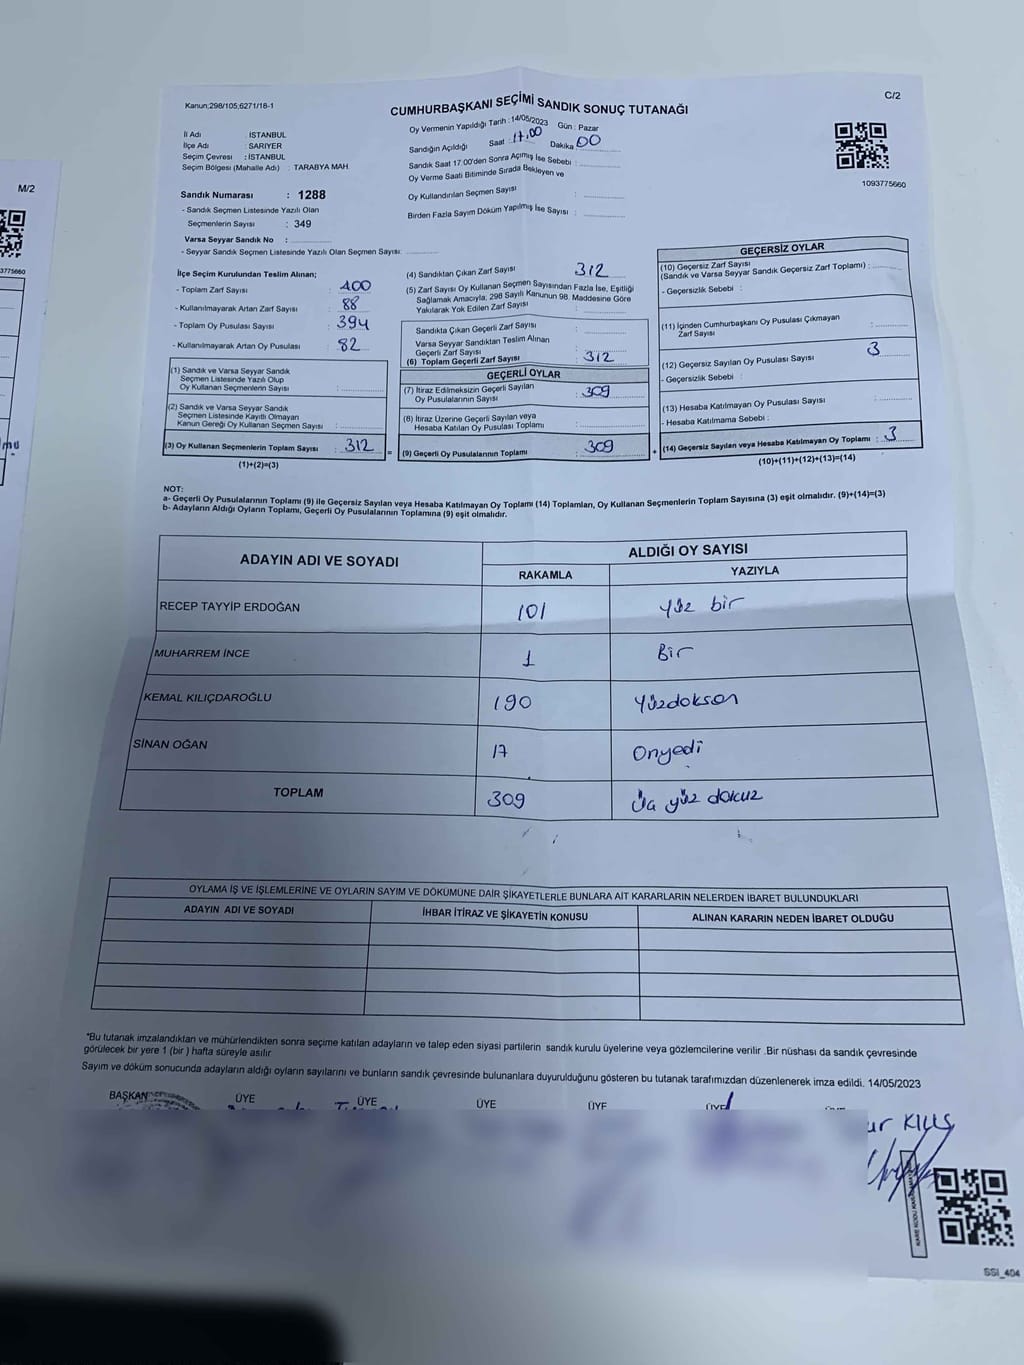 Kanun;298/105;6271/18-1
C/2
CUMHURBAŞKANI SEÇİMİ SANDIK SONUÇ TUTANAĞI
Oy Vermenin Yapıldığı Tarih : 14/05/2023 Gün : Pazar
İl Adı : İSTANBUL
İlçe Adı : SARIYER
Seçim Çevresi : İSTANBUL
Seçim Bölgesi (Mahalle Adı) : TARABYA MAH.
Sandığın Açıldığı Saat : 17,00 Dakika 00
Sandık Saat 17 00'den Sonra Açımış İse Sebebi :
Oy Verme Saati Bitiminde Sırada Bekleyen ve
Oy Kullandırılan Seçmen Sayısı :
Birden Fazla Sayım Döküm Yapılmış İse Sayısı :
1093775660
M/2
3775660
Sandık Numarası : 1288
- Sandık Seçmen Listesinde Yazılı Olan
Seçmenlerin Sayısı : 349
Varsa Seyyar Sandık No :
- Seyyar Sandık Seçmen Listesinde Yazılı Olan Seçmen Sayısı:
İlçe Seçim Kurulundan Teslim Alınan;
- Toplam Zarf Sayısı : 400
- Kullanılmayarak Artan Zarf Sayısı : 88
- Toplam Oy Pusulası Sayısı : 394
- Kullanılmayarak Artan Oy Pusulası : 82
(1) Sandık ve Varsa Seyyar Sandık
Seçmen Listesinde Yazılı Olup
Oy Kullanan Seçmenlerin Sayısı :
(2) Sandık ve Varsa Seyyar Sandık
Seçmen Listesinde Kayıtlı Olmayan
Kanun Gereği Oy Kullanan Seçmen Sayısı :
(3) Oy Kullanan Seçmenlerin Toplam Sayısı : 312
(1)+(2)=(3)
(4) Sandıktan Çıkan Zarf Sayısı : 312
(5) Zarf Sayısı Oy Kullanan Seçmen Sayısından Fazla İse, Eşitliği
Sağlamak Amacıyla; 298 Sayılı Kanunun 98. Maddesine Göre
Yakılarak Yok Edilen Zarf Sayısı :
Sandıkta Çıkan Geçerli Zarf Sayısı :
Varsa Seyyar Sandıktan Teslim Alınan
Geçerli Zarf Sayısı :
(6) Toplam Geçerli Zarf Sayısı : 312
GEÇERLİ OYLAR
(7) İtiraz Edilmeksizin Geçerli Sayılan
Oy Pusulalarının Sayısı : 309
(8) İtiraz Üzerine Geçerli Sayılan veya
Hesaba Katılan Oy Pusulası Toplamı :
= (9) Geçerli Oy Pusulalarının Toplamı : 309
GEÇERSİZ OYLAR
(10) Geçersiz Zarf Sayısı
(Sandık ve Varsa Seyyar Sandık Geçersiz Zarf Toplamı) :
- Geçersizlik Sebebi :
(11) İçinden Cumhurbaşkanı Oy Pusulası Çıkmayan
Zarf Sayısı :
(12) Geçersiz Sayılan Oy Pusulası Sayısı : 3
- Geçersizlik Sebebi :
(13) Hesaba Katılmayan Oy Pusulası Sayısı :
- Hesaba Katılmama Sebebi :
+ (14) Geçersiz Sayılan veya Hesaba Katılmayan Oy Toplamı : 3
(10)+(11)+(12)+(13)=(14)
NOT:
a- Geçerli Oy Pusulalarının Toplamı (9) ile Geçersiz Sayılan veya Hesaba Katılmayan Oy Toplamı (14) Toplamları, Oy Kullanan Seçmenlerin Toplam Sayısına (3) eşit olmalıdır. (9)+(14)=(3)
b- Adayların Aldığı Oyların Toplamı, Geçerli Oy Pusulalarının Toplamına (9) eşit olmalıdır.
ADAYIN ADI VE SOYADI
ALDIĞI OY SAYISI
RAKAMLA YAZIYLA
RECEP TAYYİP ERDOĞAN 101 Yüz bir
MUHARREM İNCE 1 Bir
KEMAL KILIÇDAROĞLU 190 Yüzdoksan
SİNAN OĞAN 17 Onyedi
TOPLAM 309 Üç yüz dokuz
OYLAMA İŞ VE İŞLEMLERİNE VE OYLARIN SAYIM VE DÖKÜMÜNE DAİR ŞİKAYETLERLE BUNLARA AİT KARARLARIN NELERDEN İBARET BULUNDUKLARI
ADAYIN ADI VE SOYADI İHBAR İTİRAZ VE ŞİKAYETİN KONUSU ALINAN KARARIN NEDEN İBARET OLDUĞU
*Bu tutanak imzalandıktan ve mühürlendikten sonra seçime katılan adayların ve talep eden siyasi partilerin sandık kurulu üyelerine veya gözlemcilerine verilir .Bir nüshası da sandık çevresinde
görülecek bir yere 1 (bir ) hafta süreyle asılır
Sayım ve döküm sonucunda adayların aldığı oyların sayılarını ve bunların sandık çevresinde bulunanlara duyurulduğunu gösteren bu tutanak tarafımızdan düzenlenerek imza edildi. 14/05/2023
BAŞKAN ÜYE ÜYE ÜYE ÜYE ÜYE
SSI_404